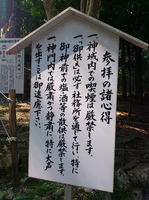 参拝の諸心得
一、神域内での喫煙は厳禁します。
一、「御供え」は必ず社務所を通して行い、特に
御神前での塩、酒等の散供は厳禁します。
一、神門内では厳粛かつ静粛に、特に大声
を出すことは御遠慮下さい。